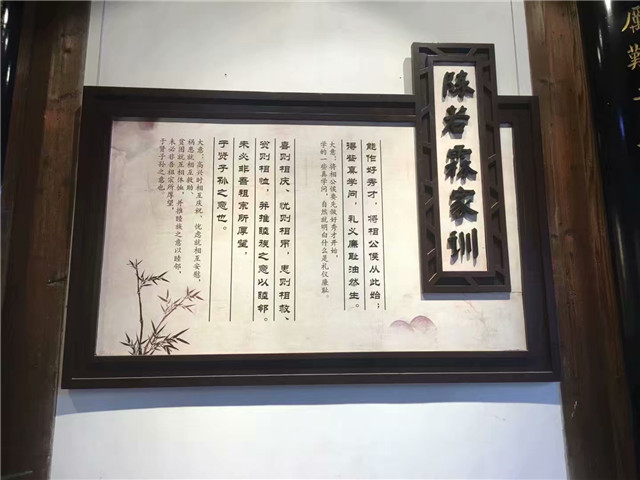 陈若霖家训
能作好秀才，将相公侯从此始；
得些真学问，礼义廉耻油然生。
大意：将相公侯要先做好秀才开始，
学的一些真学问，自然就明白什么是礼仪廉耻。
喜则相庆、忧则相吊，患则相救、
贫则相恤，并推睦族之意以睦邻。
未必非吾祖宗所厚望，
于贤子孙之意也。
大意：高兴时相互庆祝，忧虑就相互安慰，
祸患就相互救助，
贫困就互相体恤，并推睦族之意以睦邻，
未必非吾祖宗所厚望，
于贤子孙之意也